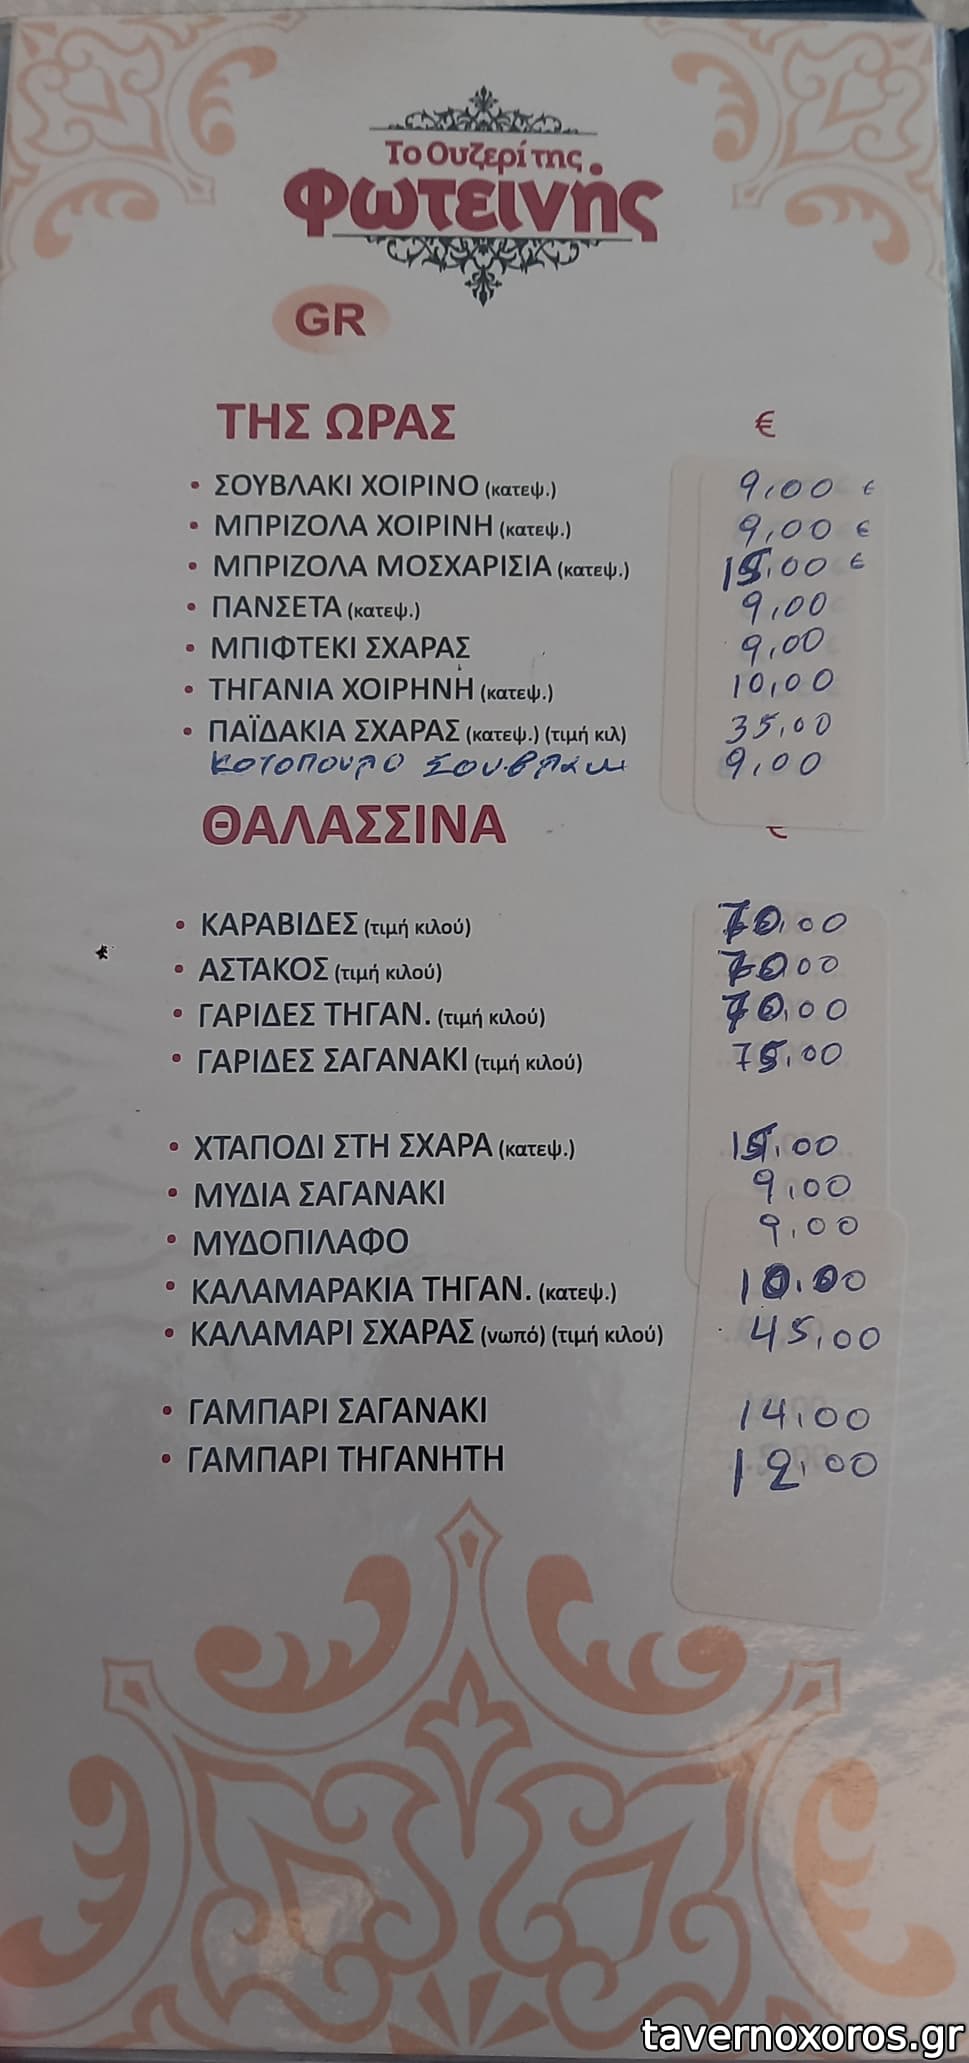 Το Ουζερί της
Φωτεινής
GR
ΤΗΣ ΩΡΑΣ €
• ΣΟΥΒΛΑΚΙ ΧΟΙΡΙΝΟ (κατεψ.) 9,00 €
• ΜΠΡΙΖΟΛΑ ΧΟΙΡΙΝΗ (κατεψ.) 9,00 €
• ΜΠΡΙΖΟΛΑ ΜΟΣΧΑΡΙΣΙΑ (κατεψ.) 15,00 €
• ΠΑΝΣΕΤΑ (κατεψ.) 9,00
• ΜΠΙΦΤΕΚΙ ΣΧΑΡΑΣ 9,00
• ΤΗΓΑΝΙΑ ΧΟΙΡΗΝΗ (κατεψ.) 10,00
• ΠΑΪΔΑΚΙΑ ΣΧΑΡΑΣ (κατεψ.) (τιμή κιλ) 35,00
Κοτοπουλο Σουβλακι 9,00
ΘΑΛΑΣΣΙΝΑ €
• ΚΑΡΑΒΙΔΕΣ (τιμή κιλού) 70,00
• ΑΣΤΑΚΟΣ (τιμή κιλού) 70,00
• ΓΑΡΙΔΕΣ ΤΗΓΑΝ. (τιμή κιλού) 70,00
• ΓΑΡΙΔΕΣ ΣΑΓΑΝΑΚΙ (τιμή κιλού) 75,00
• ΧΤΑΠΟΔΙ ΣΤΗ ΣΧΑΡΑ (κατεψ.) 15,00
• ΜΥΔΙΑ ΣΑΓΑΝΑΚΙ 9,00
• ΜΥΔΟΠΙΛΑΦΟ 9,00
• ΚΑΛΑΜΑΡΑΚΙΑ ΤΗΓΑΝ. (κατεψ.) 10.00
• ΚΑΛΑΜΑΡΙ ΣΧΑΡΑΣ (νωπό) (τιμή κιλού) 45,00
• ΓΑΜΠΑΡΙ ΣΑΓΑΝΑΚΙ 14,00
• ΓΑΜΠΑΡΙ ΤΗΓΑΝΗΤΗ 12,00
tavernoxoros.gr